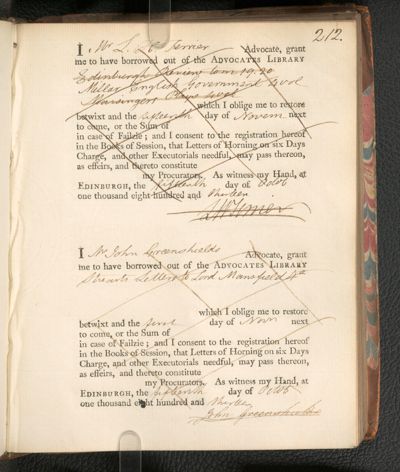 212.
I Mr L. Turner Advocate, grant
me to have borrowed out of the ADVOCATES LIBRARY
Edinburgh Review tom 19. 20
Millar English Government 4 vol
Massingers
which I oblige me to restore
betwixt and the fifteenth day of Novem. next
to come, or the Sum of
in case of Failzie; and I consent to the registration hereof
in the Books of Session, that Letters of Horning on six Days
Charge, and other Executorials needful, may pass thereon,
as effeirs, and thereto constitute
my Procurators. As witness my Hand, at
EDINBURGH, the fifteenth day of Octob
one thousand eight hundred and thirteen
I Mr John Greenshields Advocate, grant
me to have borrowed out of the ADVOCATES LIBRARY
Stuarts Letters to Lord Mansfield 4to
which I oblige me to restore
betwixt and the first day of Novr next
to come, or the Sum of
in case of Failzie; and I consent to the registration hereof
in the Books of Session, that Letters of Horning on six Days
Charge, and other Executorials needful, may pass thereon,
as effeirs, and thereto constitute
my Procurators. As witness my Hand, at
EDINBURGH, the fifteenth day of Octob
one thousand eight hundred and thirteen
John Greenshields